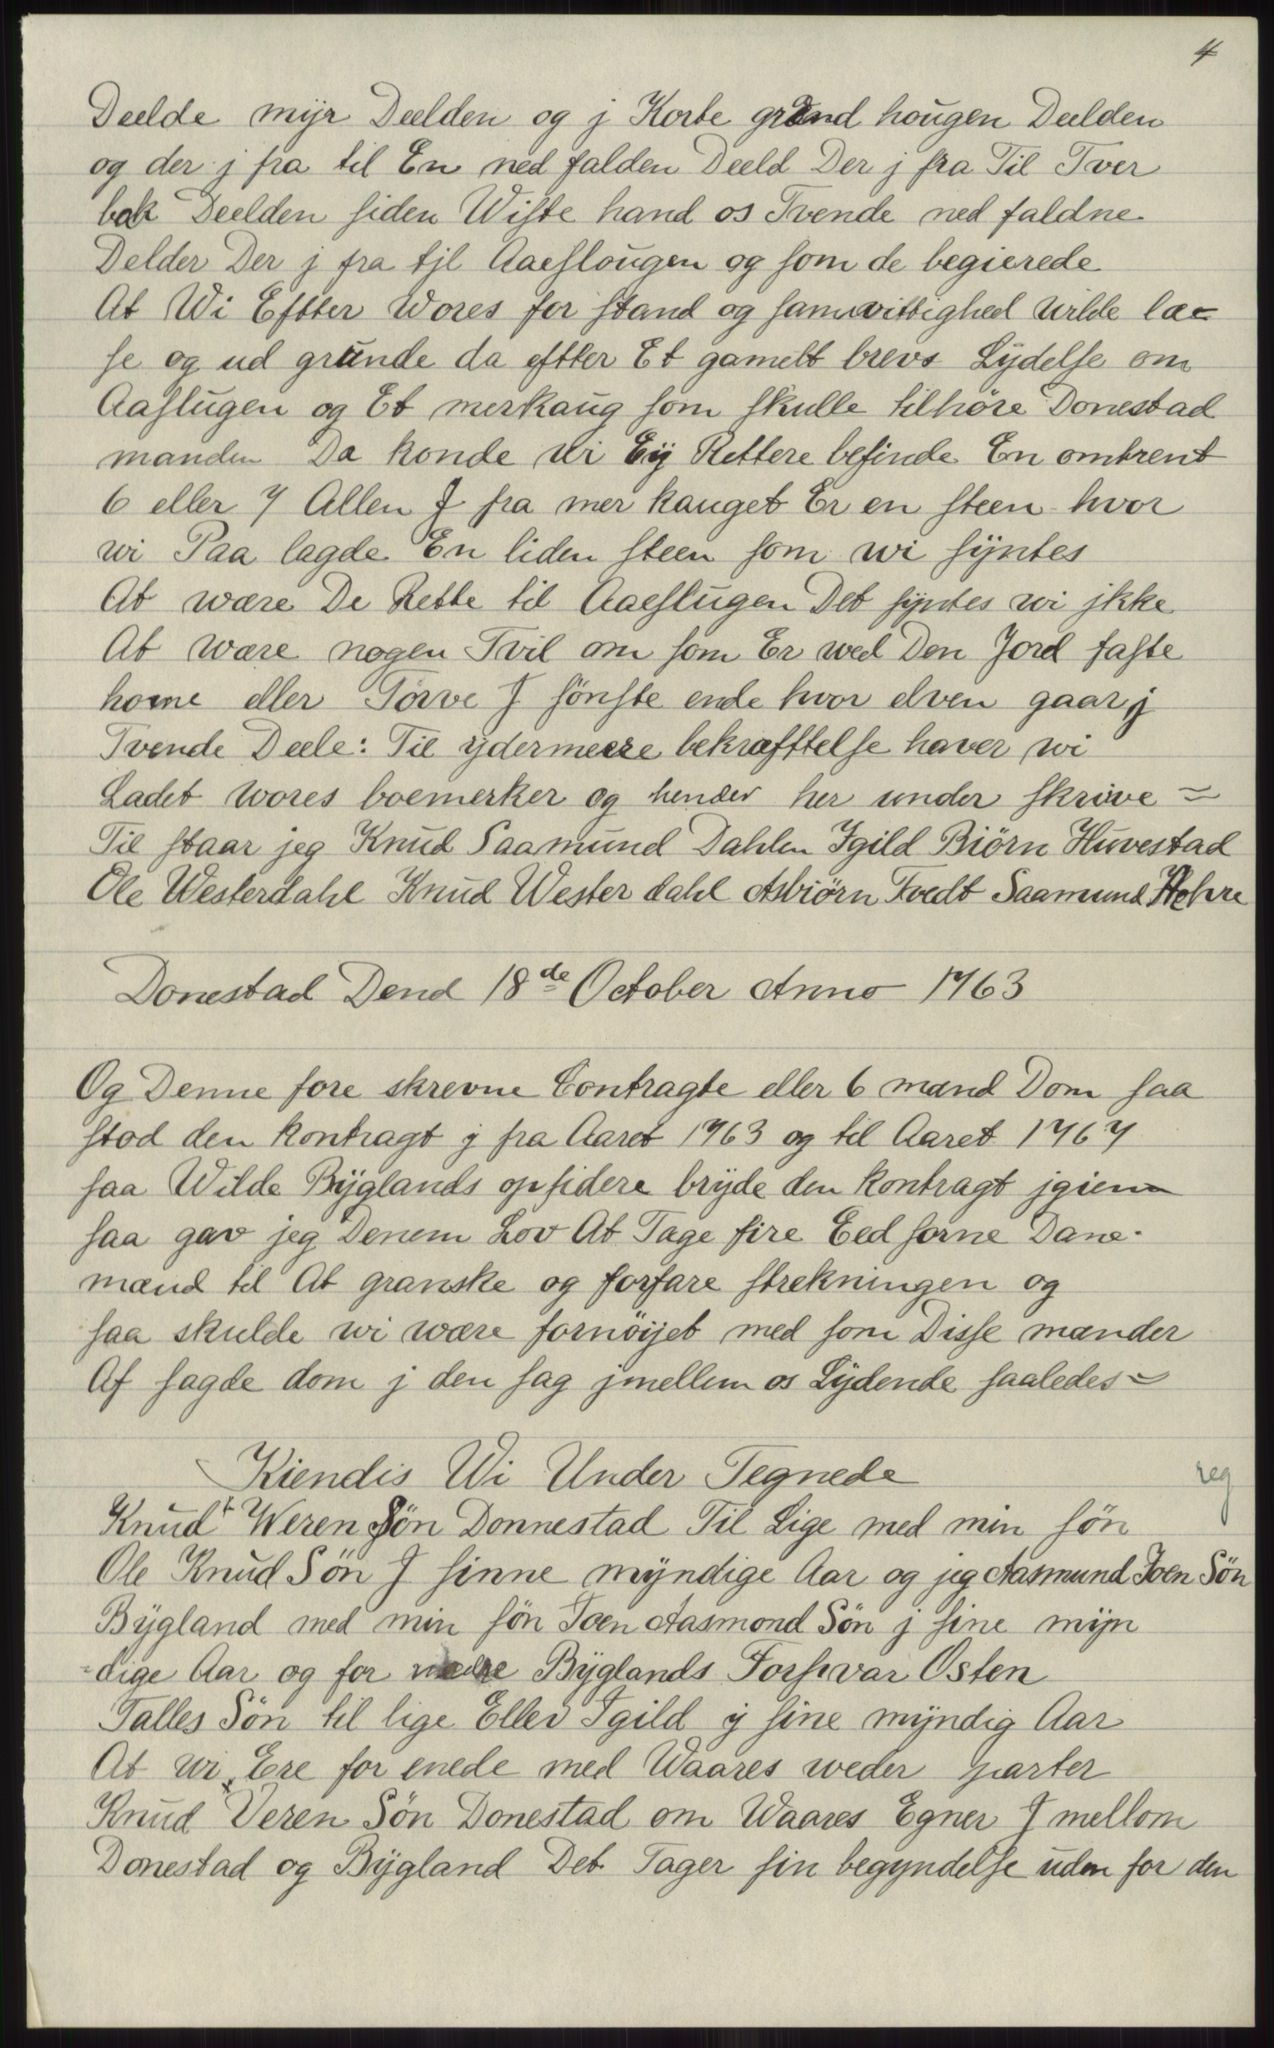 4
Deelde mijr Deelden og j Korte grend hougen Deelden
og der j fra til En ned falden Deeld Der j fra Til Tver
bak Deelden siden Wiste hand os Tvende ned faldne
Delder Der j fra tjl Aaeslougen og som de begierede
At Wi Eftter Wores for stand og samvittighed wilde læ=
se og ud grunde da eftter Et gamelt brevs Lydelse om
Aaslugen og Et merkaug som skulle tilhøre Donestad
manden Da konde wi Eÿ Rettere befinde En omtrent
6 eller 7 Allen J fra mer kauget Er en steen hvor
wi Paa lagde En liden steen som wi sÿntes
At wære De Rette til Aaeslugen Det sÿntes wi jkke
At wære nogen Tvil om som Er wed Den Jord faste
home eller Törve J sönste ende hvor elven gaar j
Tvende Deele: Til ydermeere bekræfttelse haver wi
Ladet wores boemerker og hender her under skrive =
Til staar jeg Knud Saamund Dahlen Igild Biörn Huvestad
Ole Westerdahl Knud Wester dahl Asbiörn Tvedt Saamund
Donestad Dend 18de October Anno 1763
Og Denne fore skrevne Contragte eller 6 mænd Dom saa
stod den kontragt j fra Aaret 1763 og til Aaret 1767
saa Wilde Bÿglands opsidere brÿde den kontragt jgien
saa gav jeg Denem Lov At Tage fire Eed sorne Dane-
mænd til At granske og forfare strekningen og
saa skulde wi wære fornöijet med som Disse mænder
Af sagde dom j den sag jmellem os Lÿdende saaledes =
Kiendis Wi Under Tegnede
reg
Knud Weren Sön Donnestad Til Lige med min sön
Ole Knud Sön J sinne mÿndige Aar og jeg Aasmund Joen Sön
Bÿgland med min sön Joen Aasmond Sön j sine mÿn
=dige Aar og for Bÿglands Forsvar Osten
Talles Sön til lige Ellev Igild ij sine mÿndig Aar
At wi Ere for enede med Waares weder parter
Knud Veren Sön Donestad om Waares Egner J mellom
Donestad og Bÿgland Det Tager sin begyndelse uden for den